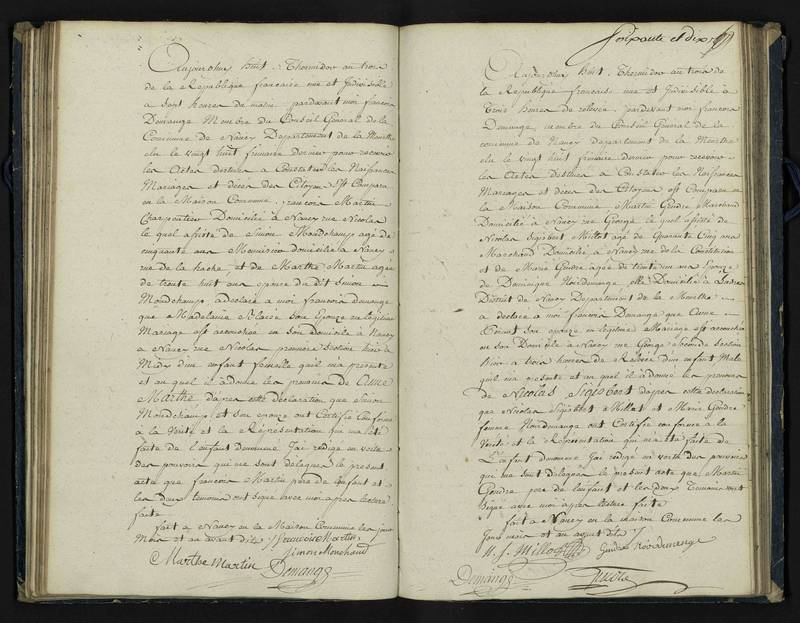 Aujourdhuy huit Thermidor an trois
de la République française une et Indivisible
a sept heures de matin pardevant moi francois
Demange Membre du Conseil Général de la
Commune de Nancy Département de la Meurthe
elu le vingt huit frimaire dernier pour recevoir
les Actes destinés a Constater les Naissances
Mariages et décès des Citoyens Est Comparu
en la Maison Commune francois Martin
Charpentier Domicilié a Nancy rue Nicolas
le quel assisté de Simon Mondchamp agé de
cinquante ans Menuisier domicilié a Nancy
rue de la hache, et de Marthe Martin agée
de trente huit ans epouse du dit Simon
Mondchamp, a déclaré a moi francois demange
que Madelaine son Epouse en légitime
Mariage est accouchée en son domicile a Nancy
a Nancy rue Nicolas première Section hier a
Midy d'un enfant femelle quil m'a présenté
et au quel il a donné les prenoms de Anne
Marthe d'après cette déclaration que Simon
Mondchamp et son epouse ont Certifié Conforme
à la Vérité et la Représentation qui m'a été
faite de l'enfant denommé J'ai rédigé en vertu
des pouvoirs qui me sont délégués le présent
acte que francois Martin père de l'enfant et
les deux temoins ont signé avec moi après lecture
faite
fait a Nancy en la Maison Commune les jour
Mois et an avant dits francois Martin
Simon Monchamd
Marthe Martin Demange
Soixante et dix
Aujourdhuy huit Thermidor an trois de
la République française une et Indivisible à
Trois heures de relevée, pardevant moi francois
Demange, membre du Conseil Général de la
commune de Nancy département de la Meurthe
elu le vingt huit frimaire dernier pour recevoir
les Actes destinés a Constater les Naissances
Mariages et décès des Citoyens est Comparu en
la Maison Commune Martin Gendre Marchand
Domicilié à Nancy rue George le quel assisté de
Nicolas Sigisbert Millot agé de Quarante Cinq ans
Marchand Domicilié, à Nancy rue de la Constitution
et de Marie Gendre agée de trente un ans Epouse
de Dominique Noirdemange, elle Domiciliée à
District de Nancy Département de la Meurthe
a déclaré a moi francois Demange que Anne
son epouse en légitime Mariage est accouchée
en son Domicile a Nancy rue George Seconde Section
hier a trois heures de Relevée d'un enfant Male
quil m'a présenté et au quel il a donné les prenoms
de Nicolas Sigisbert d'après cette déclaration
que Nicolas Sigisbert Millot et Marie Gendre
femme Noirdemange ont Certifié conforme a la
Verité et la Représentation qui m'a été faite de
L'enfant denommé J'ai rédigé en vertu des pouvoirs
qui me sont délégués le présent acte que Martin
Gendre père de l'enfant et les deux Temoins ont
Signé avec moi après lecture faite
fait a Nancy en la maison Commune les
Jours mois et an avant dits
N. S. Millot Gendre Noirdemange
Demange Gendre